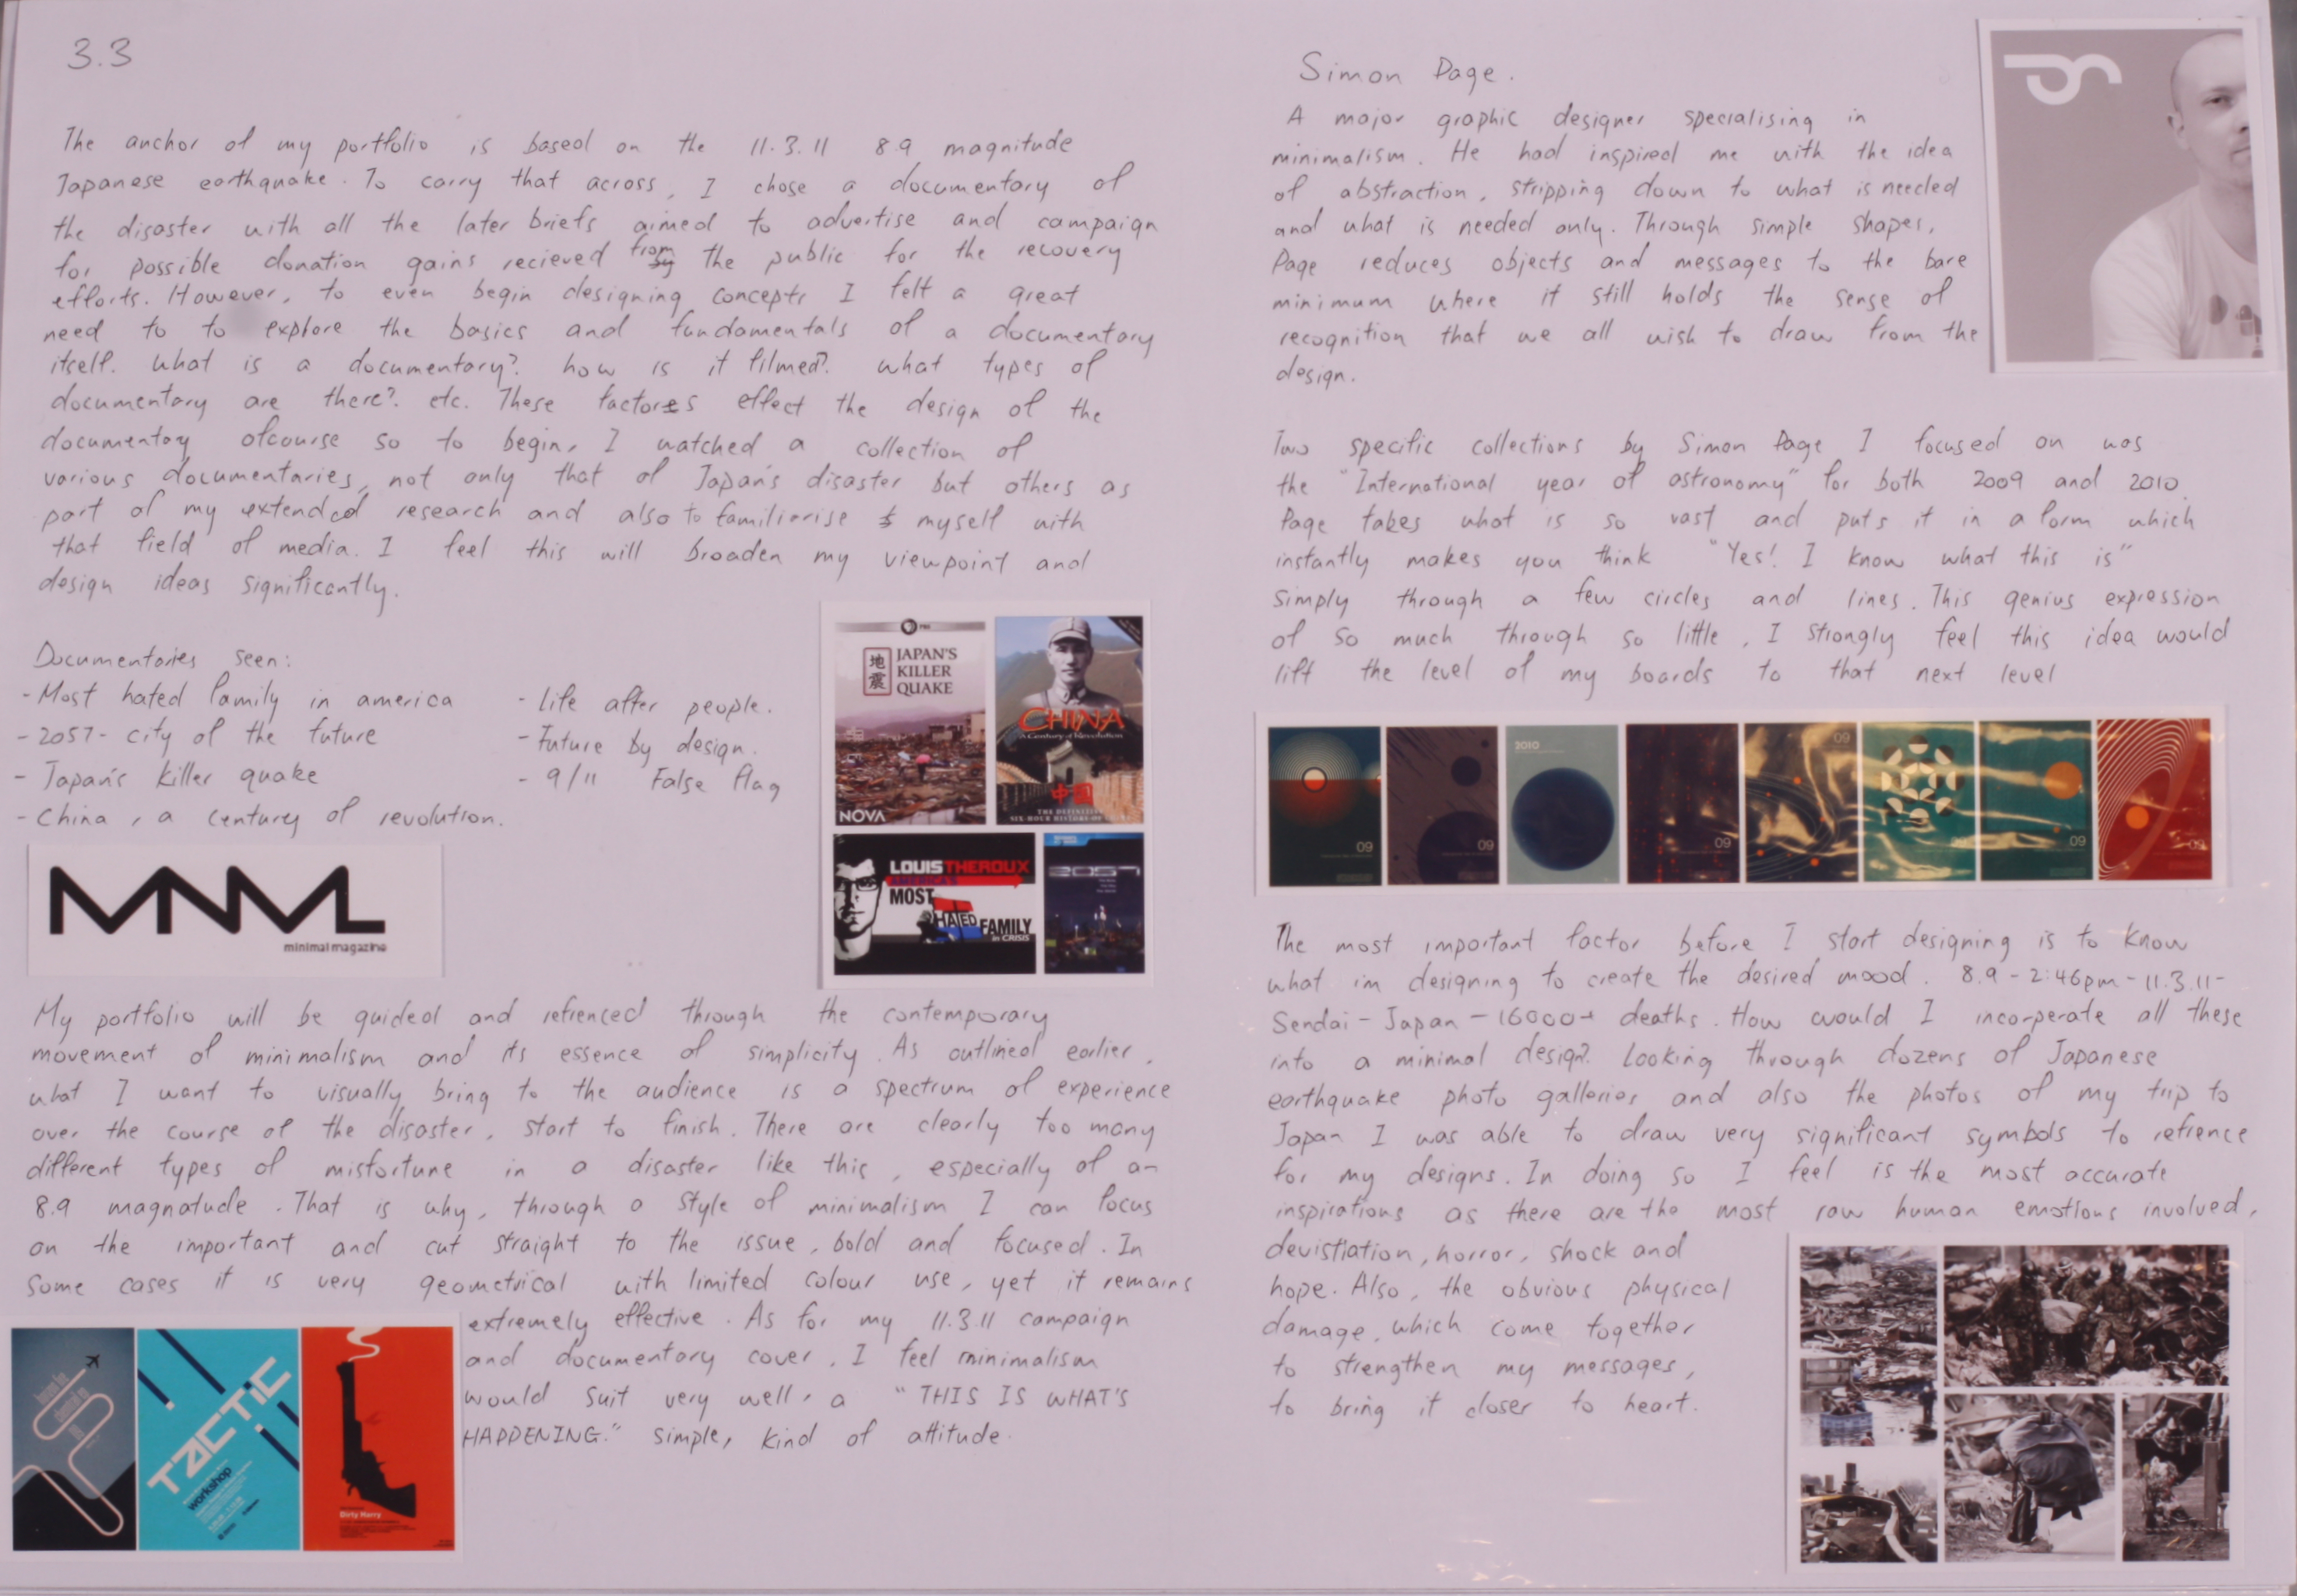 3.3
The anchor of my portfolio is based on the 11.3.11 8.9 magnitude
Japanese earthquake. To carry that across, I chose a documentary of
the disaster with all the later briefs aimed to advertise and campaign
for possible donation gains recieved from the public for the recovery
efforts. However, to even begin designing concepts I felt a great
need to to explore the basics and fundamentals of a documentary
itself. What is a documentary? how is it filmed? what types of
documentary are there? etc. These factores effect the design of the
documentary ofcourse so to begin, I watched a collection of
various documentaries, not only that of Japan's disaster but others as
part of my extended research and also to familiarise myself with
that field of media. I feel this will broaden my viewpoint and
design ideas significantly.
Documentaries seen:
- Most hated family in america
- 2057 - city of the future
- Japan's killer quake
- China, a century of revolution.
- Life after people.
- Future by design.
- 9/11 False flag
JAPAN'S
KILLER
QUAKE
地
震
NOVA
CHINA
A Century of Revolution
中国
THE DEFINITIVE
SIX-HOUR HISTORY OF
LOUIS THEROUX
AMERICA'S
MOST
HATED FAMILY
in CRISIS
2057
MNML
minimal magazine
My portfolio will be guided and refrenced through the contemporary
movement of minimalism and its essence of simplicity. As outlined earlier,
what I want to visually bring to the audience is a spectrum of experience
over the course of the disaster, start to finish. There are clearly too many
different types of misfortune in a disaster like this, especially of an
8.9 magnatude. That is why, through a style of minimalism I can focus
on the important and cut straight to the issue, bold and focused. In
some cases it is very geometrical with limited colour use, yet it remains
extremely effective. As for my 11.3.11 campaign
and documentary cover, I feel minimalism
would suit very well, a "THIS IS WHAT'S
HAPPENING." simple, kind of attitude.
TACTIC
workshop
Dirty Harry
Simon Page.
A major graphic designer specialising in
minimalism. He had inspired me with the idea
of abstraction, stripping down to what is needed
and what is needed only. Through simple shapes,
Page reduces objects and messages to the bare
minimum where it still holds the sense of
recognition that we all wish to draw from the
design.
Two specific collections by Simon Page I focused on was
the "International year of astronomy" for both 2009 and 2010.
Page takes what is so vast and puts it in a form which
instantly makes you think "Yes! I know what this is"
simply through a few circles and lines. This genius expression
of so much through so little, I strongly feel this idea would
lift the level of my boards to that next level
09
09
2010
09
09
09
09
The most important factor before I start designing is to know
what im designing to create the desired mood. 8.9 - 2:46pm - 11.3.11 -
Sendai - Japan - 16000+ deaths. How would I incorperate all these
into a minimal design? Looking through dozens of Japanese
earthquake photo galleries and also the photos of my trip to
Japan I was able to draw very significant symbols to refrence
for my designs. In doing so I feel is the most accurate
inspirations as there are the most raw human emotions involved,
devistiation, horror, shock and
hope. Also, the obvious physical
damage, which come together
to strengthen my messages,
to bring it closer to heart.